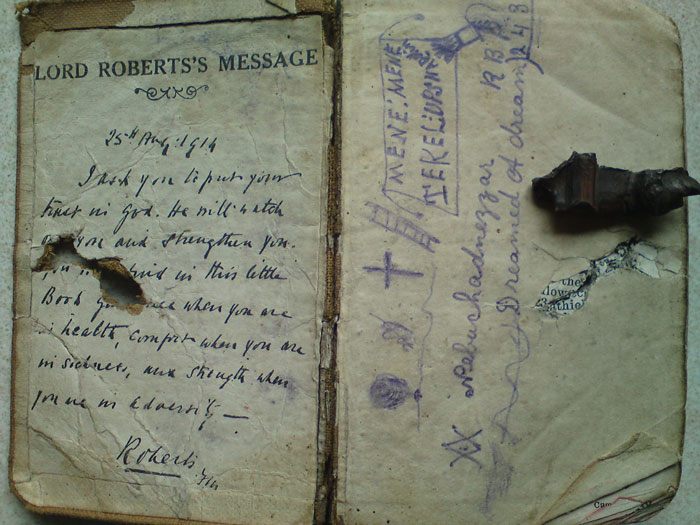 LORD ROBERTS'S MESSAGE
25th Aug: 1914
I ask you to put your
trust in God. He will watch
you and strengthen you.
You in this little
Book when you are
in health, comfort when you are
in sickness, and strength when
you are in adversity
Roberts
MENE: MENE:
TEKEL: UPSN
XX Nabuchadnezzar R B R
Dreamed A dream 248
the